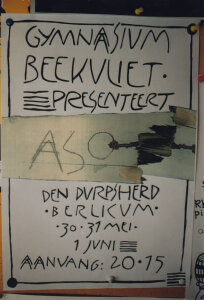 GYMNASIUM
BEEKVLIET.
PRESENTEERT
ASO
DEN DURPSHERD
· BERLICUM ·
· 30 · 31 MEI ·
1 JUNI
AANVANG: 20·15